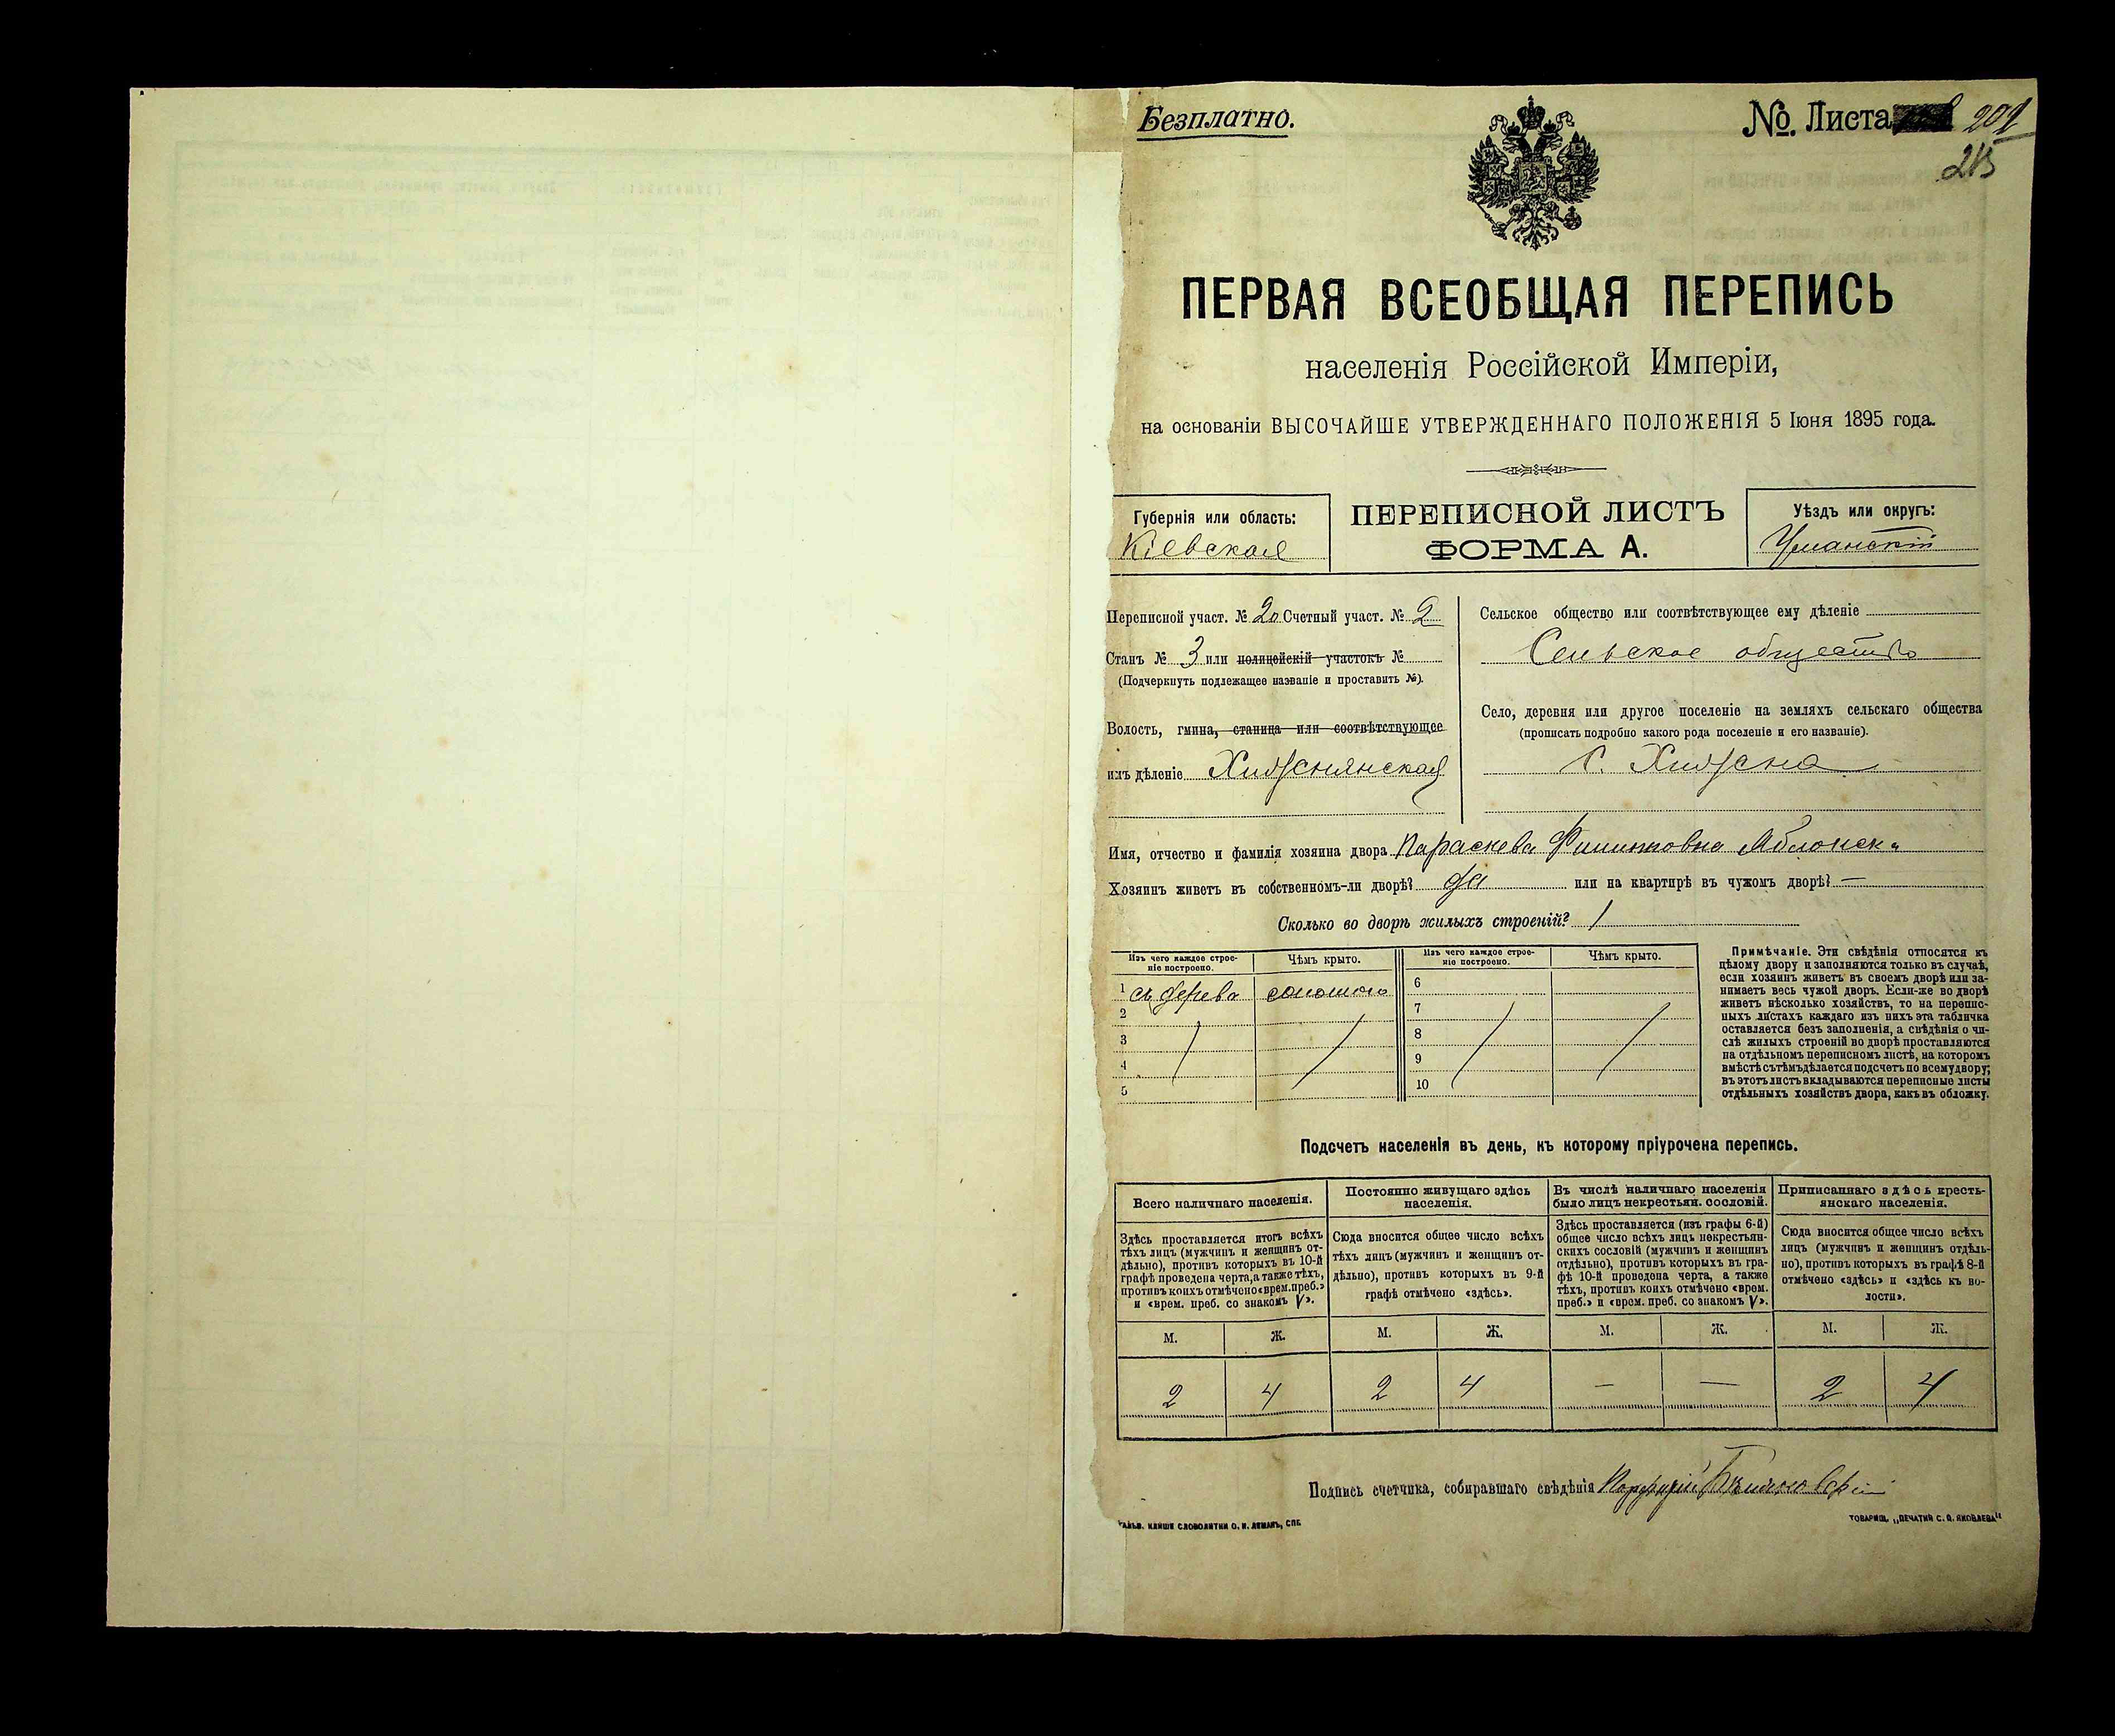 Безплатно.
№. Листа 202
213
ПЕРВАЯ ВСЕОБЩАЯ ПЕРЕПИСЬ
населенія Россійской Имперіи,
на основаніи ВЫСОЧАЙШЕ УТВЕРЖДЕННАГО ПОЛОЖЕНІЯ 5 Іюня 1895 года.
Губернія или область:
Кіевская
ПЕРЕПИСНОЙ ЛИСТЪ
ФОРМА А.
Уѣздъ или округъ:
Уманскій
Переписной участ. № 20 Счетный участ. № 2
Станъ № 3 или полицейскій участокъ №
(Подчеркнуть подлежащее названіе и проставить №).
Волость, гмина, станица или соотвѣтствующее
имъ дѣленіе Хижнянская
Сельское общество или соотвѣтствующее ему дѣленіе
Сельское общество
Село, деревня или другое поселеніе на земляхъ сельскаго общества
(прописать подробно какого рода поселеніе и его названіе).
с. Хижна
Имя, отчество и фамилія хозяина двора Параскева Филиповна Яблонск
Хозяинъ живетъ въ собственномъ-ли дворѣ? да или на квартирѣ въ чужомъ дворѣ? —
Сколько во дворѣ жилыхъ строеній? 1
Изъ чего каждое строе-
ніе построено.
Чѣмъ крыто.
1 съ дерева соломою
2
3
4
5
Изъ чего каждое строе-
ніе построено.
Чѣмъ крыто.
6
7
8
9
10
Примѣчаніе. Эти свѣдѣнія относятся къ
цѣлому двору и заполняются только въ случаѣ,
если хозяинъ живетъ въ своемъ дворѣ или за-
нимаетъ весь чужой дворъ. Если-же во дворѣ
живетъ нѣсколько хозяйствъ, то на перепис-
ныхъ листахъ каждаго изъ нихъ эта табличка
оставляется безъ заполненія, а свѣдѣнія о чи-
слѣ жилыхъ строеній во дворѣ проставляются
на отдѣльномъ переписномъ листѣ, на которомъ
вмѣстѣ съ тѣмъ дѣлается подсчетъ по всему двору;
въ этотъ листъ вкладываются переписные листы
отдѣльныхъ хозяйствъ двора, какъ въ обложку.
Подсчетъ населенія въ день, къ которому пріурочена перепись.
Всего наличнаго населенія.
Здѣсь проставляется итогъ всѣхъ
тѣхъ лицъ (мужчинъ и женщинъ от-
дѣльно), противъ которыхъ въ 10-й
графѣ проведена черта, а также тѣхъ,
противъ коихъ отмѣчено «врем. преб.»
и «врем. преб. со знакомъ V».
М. Ж.
2 4
Постоянно живущаго здѣсь
населенія.
Сюда вносится общее число всѣхъ
тѣхъ лицъ (мужчинъ и женщинъ от-
дѣльно), противъ которыхъ въ 9-й
графѣ отмѣчено «здѣсь».
М. Ж.
2 4
Въ числѣ наличнаго населенія
было лицъ некрестьян. сословій.
Здѣсь проставляется (изъ графы 6-й)
общее число всѣхъ лицъ некрестьян-
скихъ сословій (мужчинъ и женщинъ
отдѣльно), противъ которыхъ въ гра-
фѣ 10-й проведена черта, а также
тѣхъ, противъ коихъ отмѣчено «врем.
преб.» и «врем. преб. со знакомъ V».
М. Ж.
— —
Приписаннаго здѣсь кресть-
янскаго населенія.
Сюда вносится общее число всѣхъ
лицъ (мужчинъ и женщинъ отдѣль-
но), противъ которыхъ въ графѣ 8-й
отмѣчено «здѣсь» и «здѣсь къ во-
лости».
М. Ж.
2 4
Подпись счетчика, собиравшаго свѣдѣнія Порфирій
КЛИШЕ СЛОВОЛИТНИ О. И. ЛЕМАНЪ, СПБ.
ТОВАРИЩ. „ПЕЧАТНЯ С. П. ЯКОВЛЕВА"